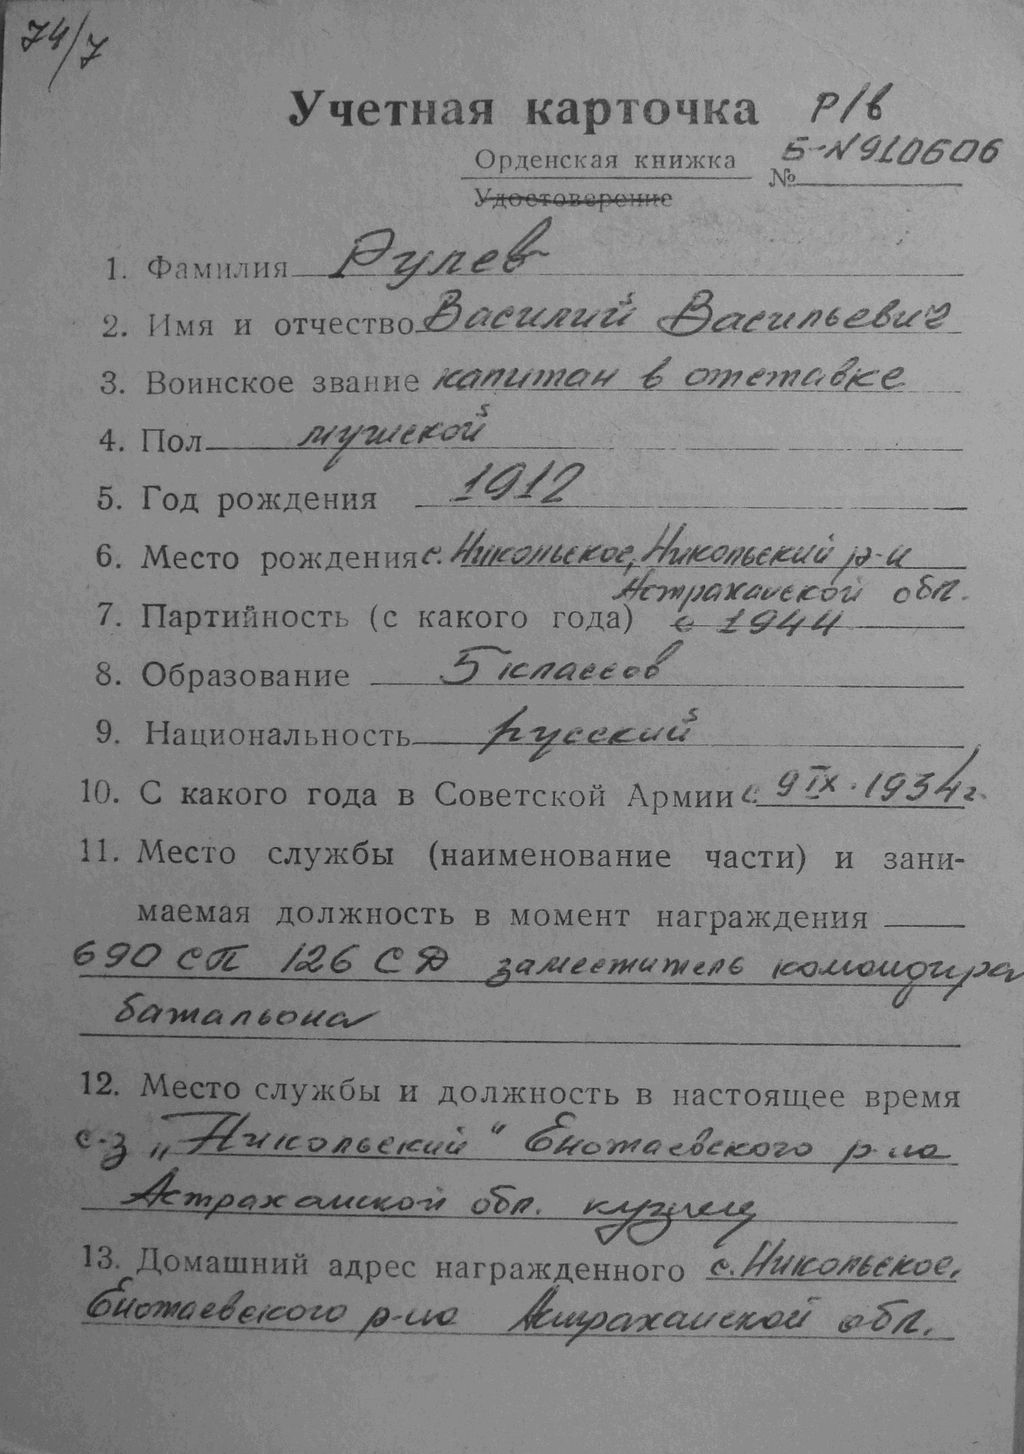 74/7
Учетная карточка Р/в
Орденская книжка № Б-N910606
Удостоверение
1. Фамилия Рулев
2. Имя и отчество Василий Васильевич
3. Воинское звание капитан в отставке
4. Пол мужской
5. Год рождения 1912
6. Место рождения с. Никольское, Никольский р-н
Астраханской обл.
7. Партийность (с какого года) с 1944
8. Образование 5 классов
9. Национальность русский
10. С какого года в Советской Армии с 9 IX. 1934 г.
11. Место службы (наименование части) и зани-
маемая должность в момент награждения
690 СП 126 СД заместитель командира
батальона
12. Место службы и должность в настоящее время
с-з „Никольский" Енотаевского р-на
Астраханской обл. кузнец
13. Домашний адрес награжденного с. Никольское,
Енотаевского р-на Астраханской обл.